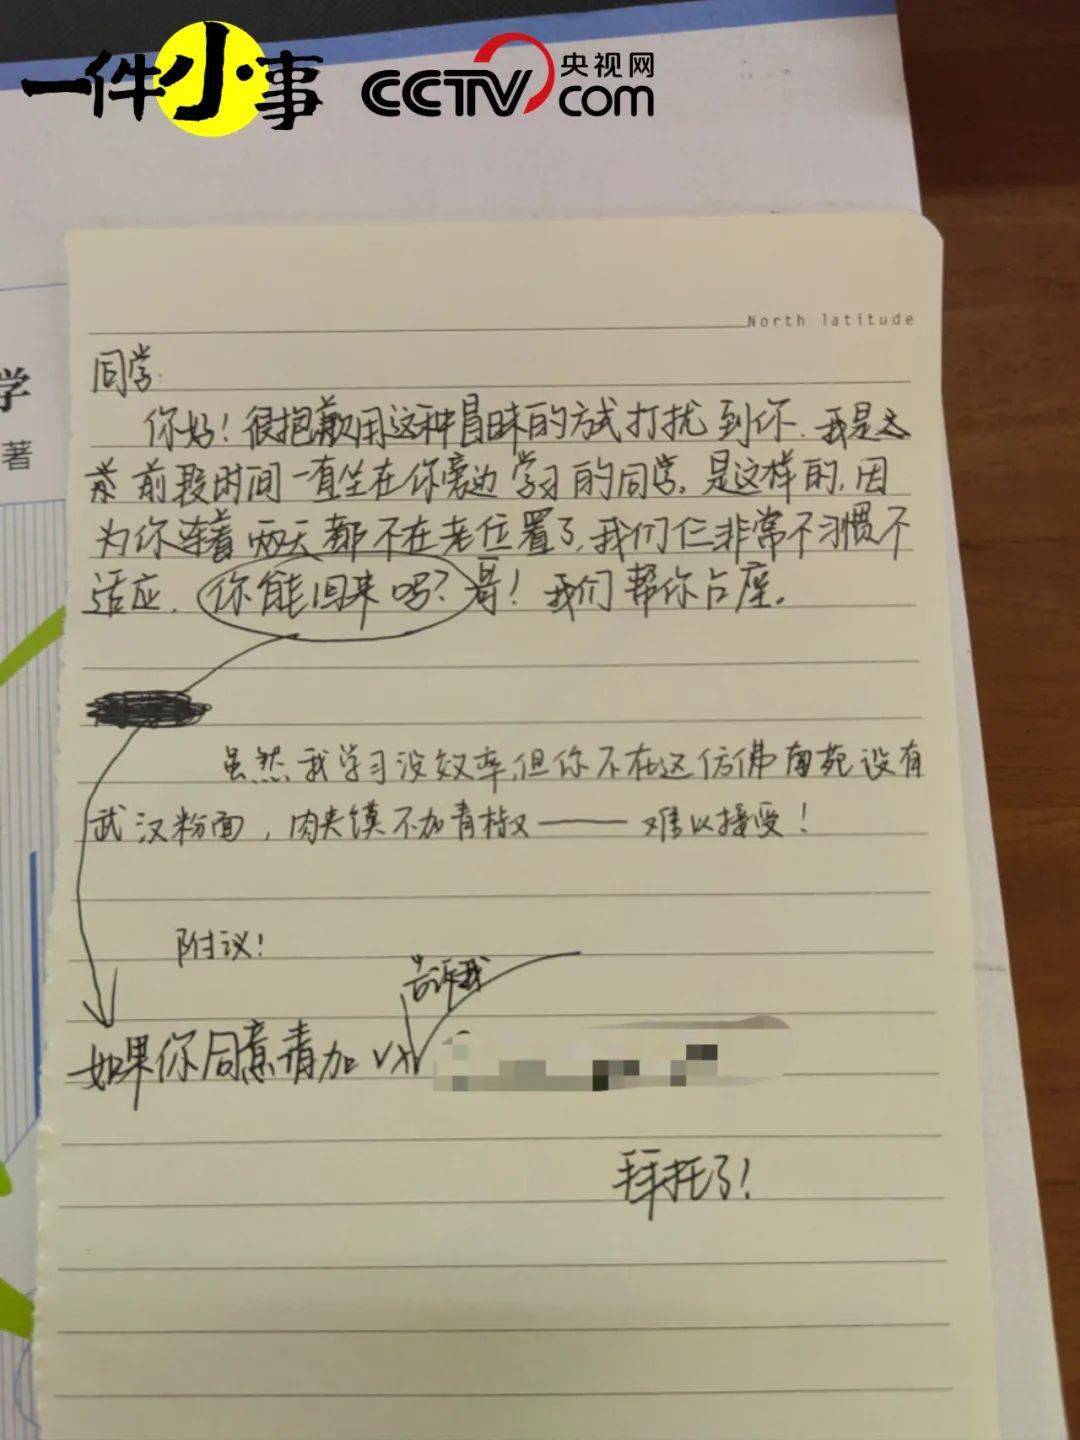 一件小事
CCTV 央视网
com
学
著
North latitude
同学:
你好！很抱歉用这种冒昧的方式打扰到你.我是
前段时间一直坐在你旁边学习的同学.是这样的.因
为你连着两天都不在老位置了,我们仨非常不习惯不
适应.你能回来吗？哥！我们帮你占座。
虽然我学习没效率,但你不在这仿佛南苑没有
武汉粉面,肉夹馍不加青椒——难以接受！
附议！
告诉我
如果你同意请加VX
拜托了！